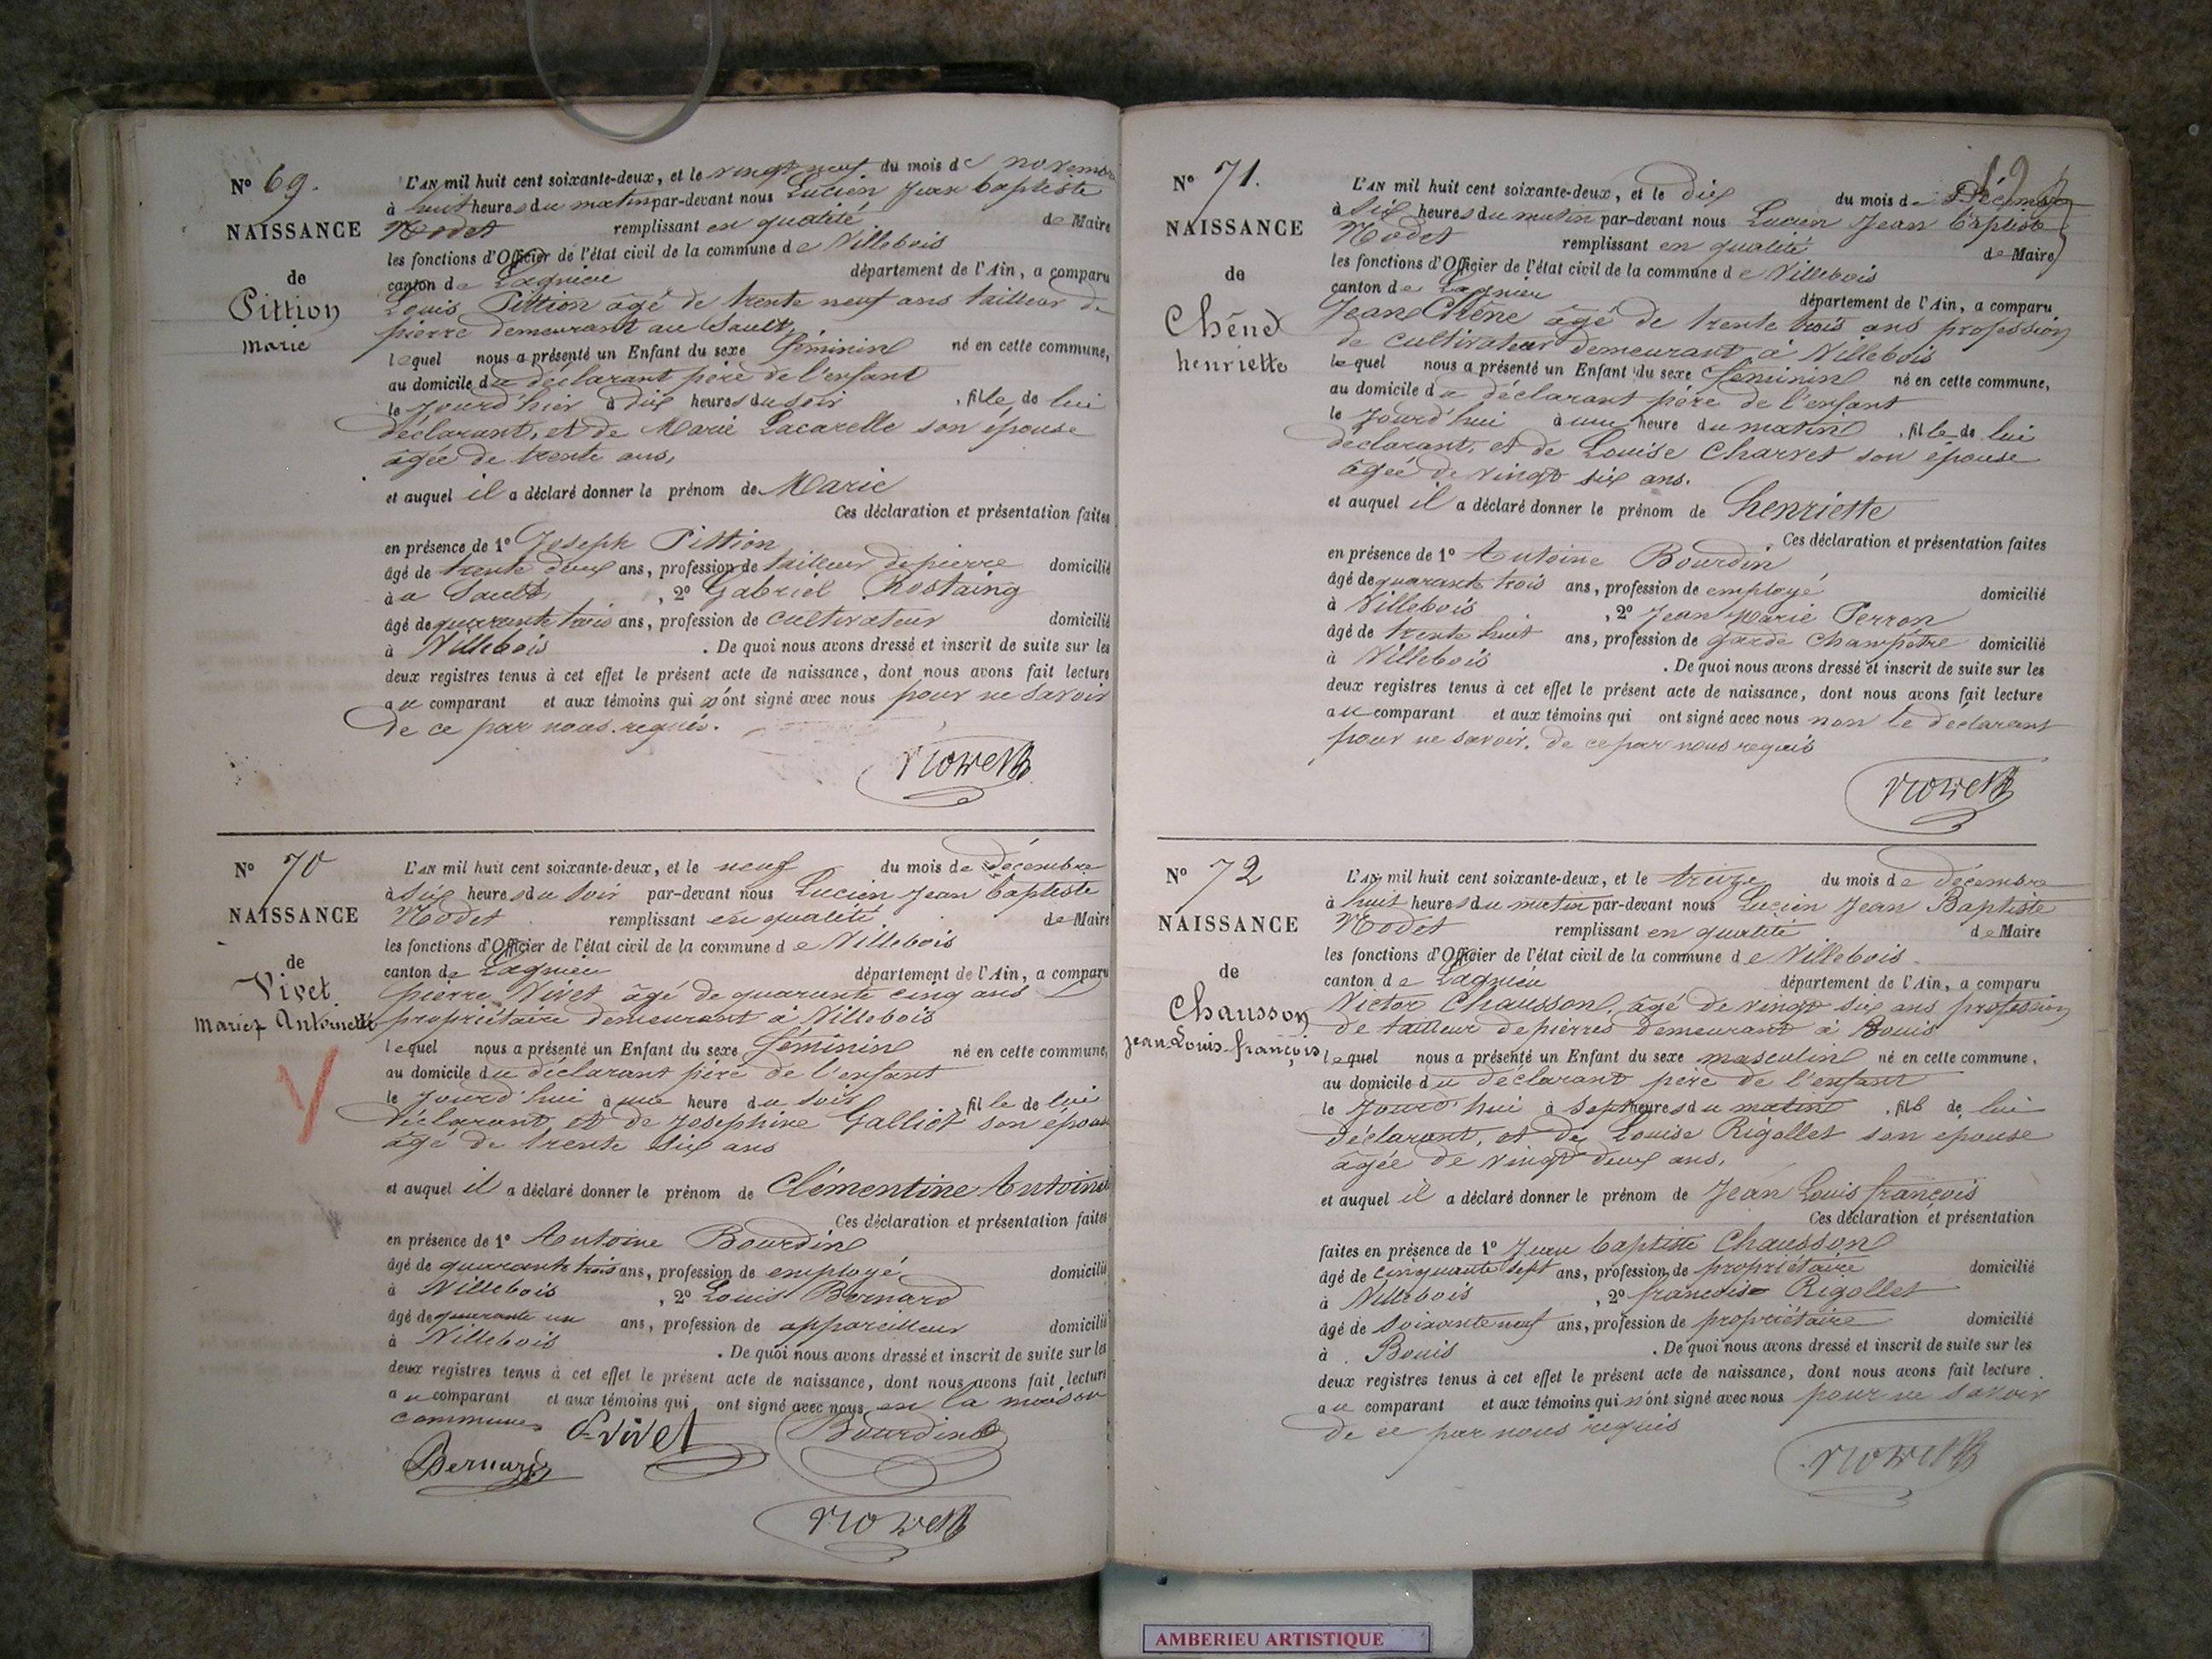 N° 69.
NAISSANCE
de
Pittion
marie
L'AN mil huit cent soixante-deux, et le vingt neuf du mois de novembre
à huit heures du matin par-devant nous Lucien Jean baptiste
Nodet remplissant en qualité de Maire
les fonctions d'Officier de l'état civil de la commune de Villebois
canton de Lagnieu département de l'Ain, a comparu
Louis Pittion âgé de trente neuf ans tailleur de
pierre demeurant au Sault,
lequel nous a présenté un Enfant du sexe féminin né en cette commune,
au domicile du déclarant père de l'enfant
le jourd'hier à dix heures du soir , fille de lui
déclarant, et de Marie Lacarelle son épouse
âgée de trente ans,
et auquel il a déclaré donner le prénom de Marie
Ces déclaration et présentation faites
en présence de 1° Joseph Pittion
âgé de trente deux ans, profession de tailleur de pierre domicilié
à au Sault , 2° Gabriel Rostaing
âgé de quarante trois ans, profession de cultivateur domicilié
à Villebois . De quoi nous avons dressé et inscrit de suite sur les
deux registres tenus à cet effet le présent acte de naissance, dont nous avons fait lecture
au comparant et aux témoins qui n'ont signé avec nous pour ne savoir
de ce par nous requis.
N° 70
NAISSANCE
de
Vivet
Antoinette
L'AN mil huit cent soixante-deux, et le neuf du mois de décembre
à six heures du soir par-devant nous Lucien Jean baptiste
Nodet remplissant en qualité de Maire
les fonctions d'Officier de l'état civil de la commune de Villebois
canton de Lagnieu département de l'Ain, a comparu
pierre Vivet âgé de quarante cinq ans
propriétaire demeurant à Villebois
lequel nous a présenté un Enfant du sexe féminin né en cette commune,
au domicile du déclarant père de l'enfant
le jourd'hui à une heure du soir , fille de lui
déclarant et de Josephine Galliot son épouse
âgé de trente six ans
et auquel il a déclaré donner le prénom de Clémentine Antoinet
Ces déclaration et présentation faites
en présence de 1° Antoine Bourdin
âgé de quarante trois ans, profession de employé domicilié
à Villebois , 2° Louis Bernard
âgé de quarante un ans, profession de appareilleur domicilié
à Villebois . De quoi nous avons dressé et inscrit de suite sur les
deux registres tenus à cet effet le présent acte de naissance, dont nous avons fait lecture
au comparant et aux témoins qui ont signé avec nous en la maison
commune
P Vivet Bourdin
Bernard
N° 71.
NAISSANCE
de
Chêne
henriette
L'AN mil huit cent soixante-deux, et le dix du mois de Décembre
à six heures du matin par-devant nous Lucien Jean baptiste
Nodet remplissant en qualité de Maire
les fonctions d'Officier de l'état civil de la commune de Villebois
canton de Lagnieu département de l'Ain, a comparu
Jean Chêne âgé de trente trois ans profession
de cultivateur demeurant à Villebois
lequel nous a présenté un Enfant du sexe féminin né en cette commune,
au domicile du déclarant père de l'enfant
le jourd'hui à une heure du matin , fille de lui
déclarant, et de Louise Charvet son épouse
âgée de vingt six ans.
et auquel il a déclaré donner le prénom de henriette
Ces déclaration et présentation faites
en présence de 1° Antoine Bourdin
âgé de quarante trois ans, profession de employé domicilié
à Villebois , 2° Jean Marie Perron
âgé de trente huit ans, profession de garde champêtre domicilié
à Villebois . De quoi nous avons dressé et inscrit de suite sur les
deux registres tenus à cet effet le présent acte de naissance, dont nous avons fait lecture
au comparant et aux témoins qui ont signé avec nous non le déclarant
pour ne savoir. de ce par nous requis
N° 72
NAISSANCE
de
Chausson
jean-Louis-françois
L'AN mil huit cent soixante-deux, et le treize du mois de décembre
à huit heures du matin par-devant nous Lucien Jean Baptiste
Nodet remplissant en qualité de Maire
les fonctions d'Officier de l'état civil de la commune de Villebois
canton de Lagnieu département de l'Ain, a comparu
Victor Chausson, âgé de vingt six ans profession
de tailleur de pierres demeurant à Bouis
lequel nous a présenté un Enfant du sexe masculin né en cette commune,
au domicile du déclarant père de l'enfant
le jourd'hui à sept heures du matin , fils de lui
déclarant, et de Louise Rigollet son épouse
âgée de vingt deux ans,
et auquel il a déclaré donner le prénom de Jean Louis françois
Ces déclaration et présentation
faites en présence de 1° Jean baptiste Chausson
âgé de cinquante sept ans, profession de propriétaire domicilié
à Villebois , 2° francois Rigollet
âgé de soixante neuf ans, profession de propriétaire domicilié
à Bouis . De quoi nous avons dressé et inscrit de suite sur les
deux registres tenus à cet effet le présent acte de naissance, dont nous avons fait lecture
au comparant et aux témoins qui n'ont signé avec nous pour ne savoir
de ce par nous requis
AMBERIEU ARTISTIQUE